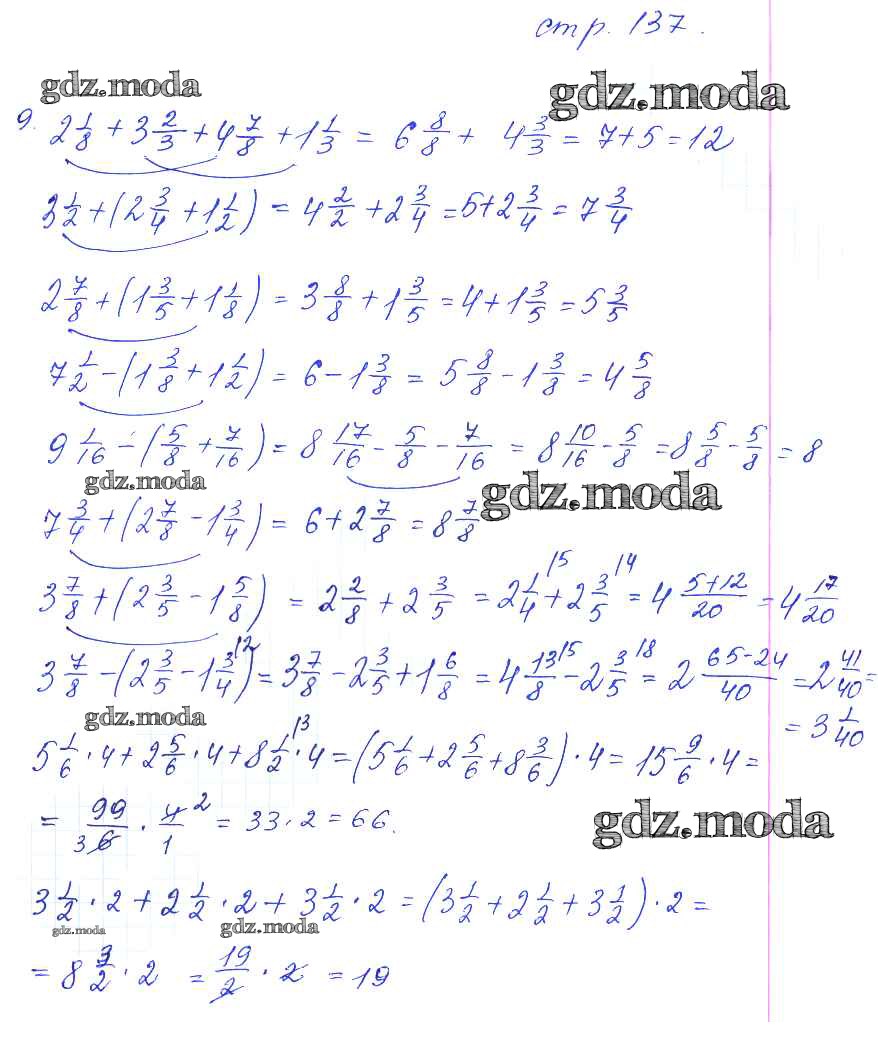 стр. 137.
gdz.moda gdz.moda
9. 2 1/8 + 3 2/3 + 4 7/8 + 1 1/3 = 6 8/8 + 4 3/3 = 7 + 5 = 12
3 1/2 + (2 3/4 + 1 1/2) = 4 2/2 + 2 3/4 = 5 + 2 3/4 = 7 3/4
2 7/8 + (1 3/5 + 1 1/8) = 3 8/8 + 1 3/5 = 4 + 1 3/5 = 5 3/5
7 1/2 - (1 3/8 + 1 1/2) = 6 - 1 3/8 = 5 8/8 - 1 3/8 = 4 5/8
9 1/16 - (5/8 + 7/16) = 8 17/16 - 5/8 - 7/16 = 8 10/16 - 5/8 = 8 5/8 - 5/8 = 8
gdz.moda gdz.moda
7 3/4 + (2 7/8 - 1 3/4) = 6 + 2 7/8 = 8 7/8
3 7/8 + (2 3/5 - 1 5/8) = 2 2/8 + 2 3/5 = 2 1/4 /5 + 2 3/5 /4 = 4 (5+12)/20 = 4 17/20
3 7/8 - (2 3/5 - 1 3/4 /2) = 3 7/8 - 2 3/5 + 1 6/8 = 4 13/8 /5 - 2 3/5 /8 = 2 (65-24)/40 = 2 41/40 =
gdz.moda
= 3 1/40
5 1/6 · 4 + 2 5/6 · 4 + 8 1/2 /3 · 4 = (5 1/6 + 2 5/6 + 8 3/6) · 4 = 15 9/6 · 4 =
= 99/6 3 · 4/1 2 = 33 · 2 = 66.
gdz.moda
3 1/2 · 2 + 2 1/2 · 2 + 3 1/2 · 2 = (3 1/2 + 2 1/2 + 3 1/2) · 2 =
gdz.moda gdz.moda
= 8 3/2 · 2 = 19/2 · 2 = 19